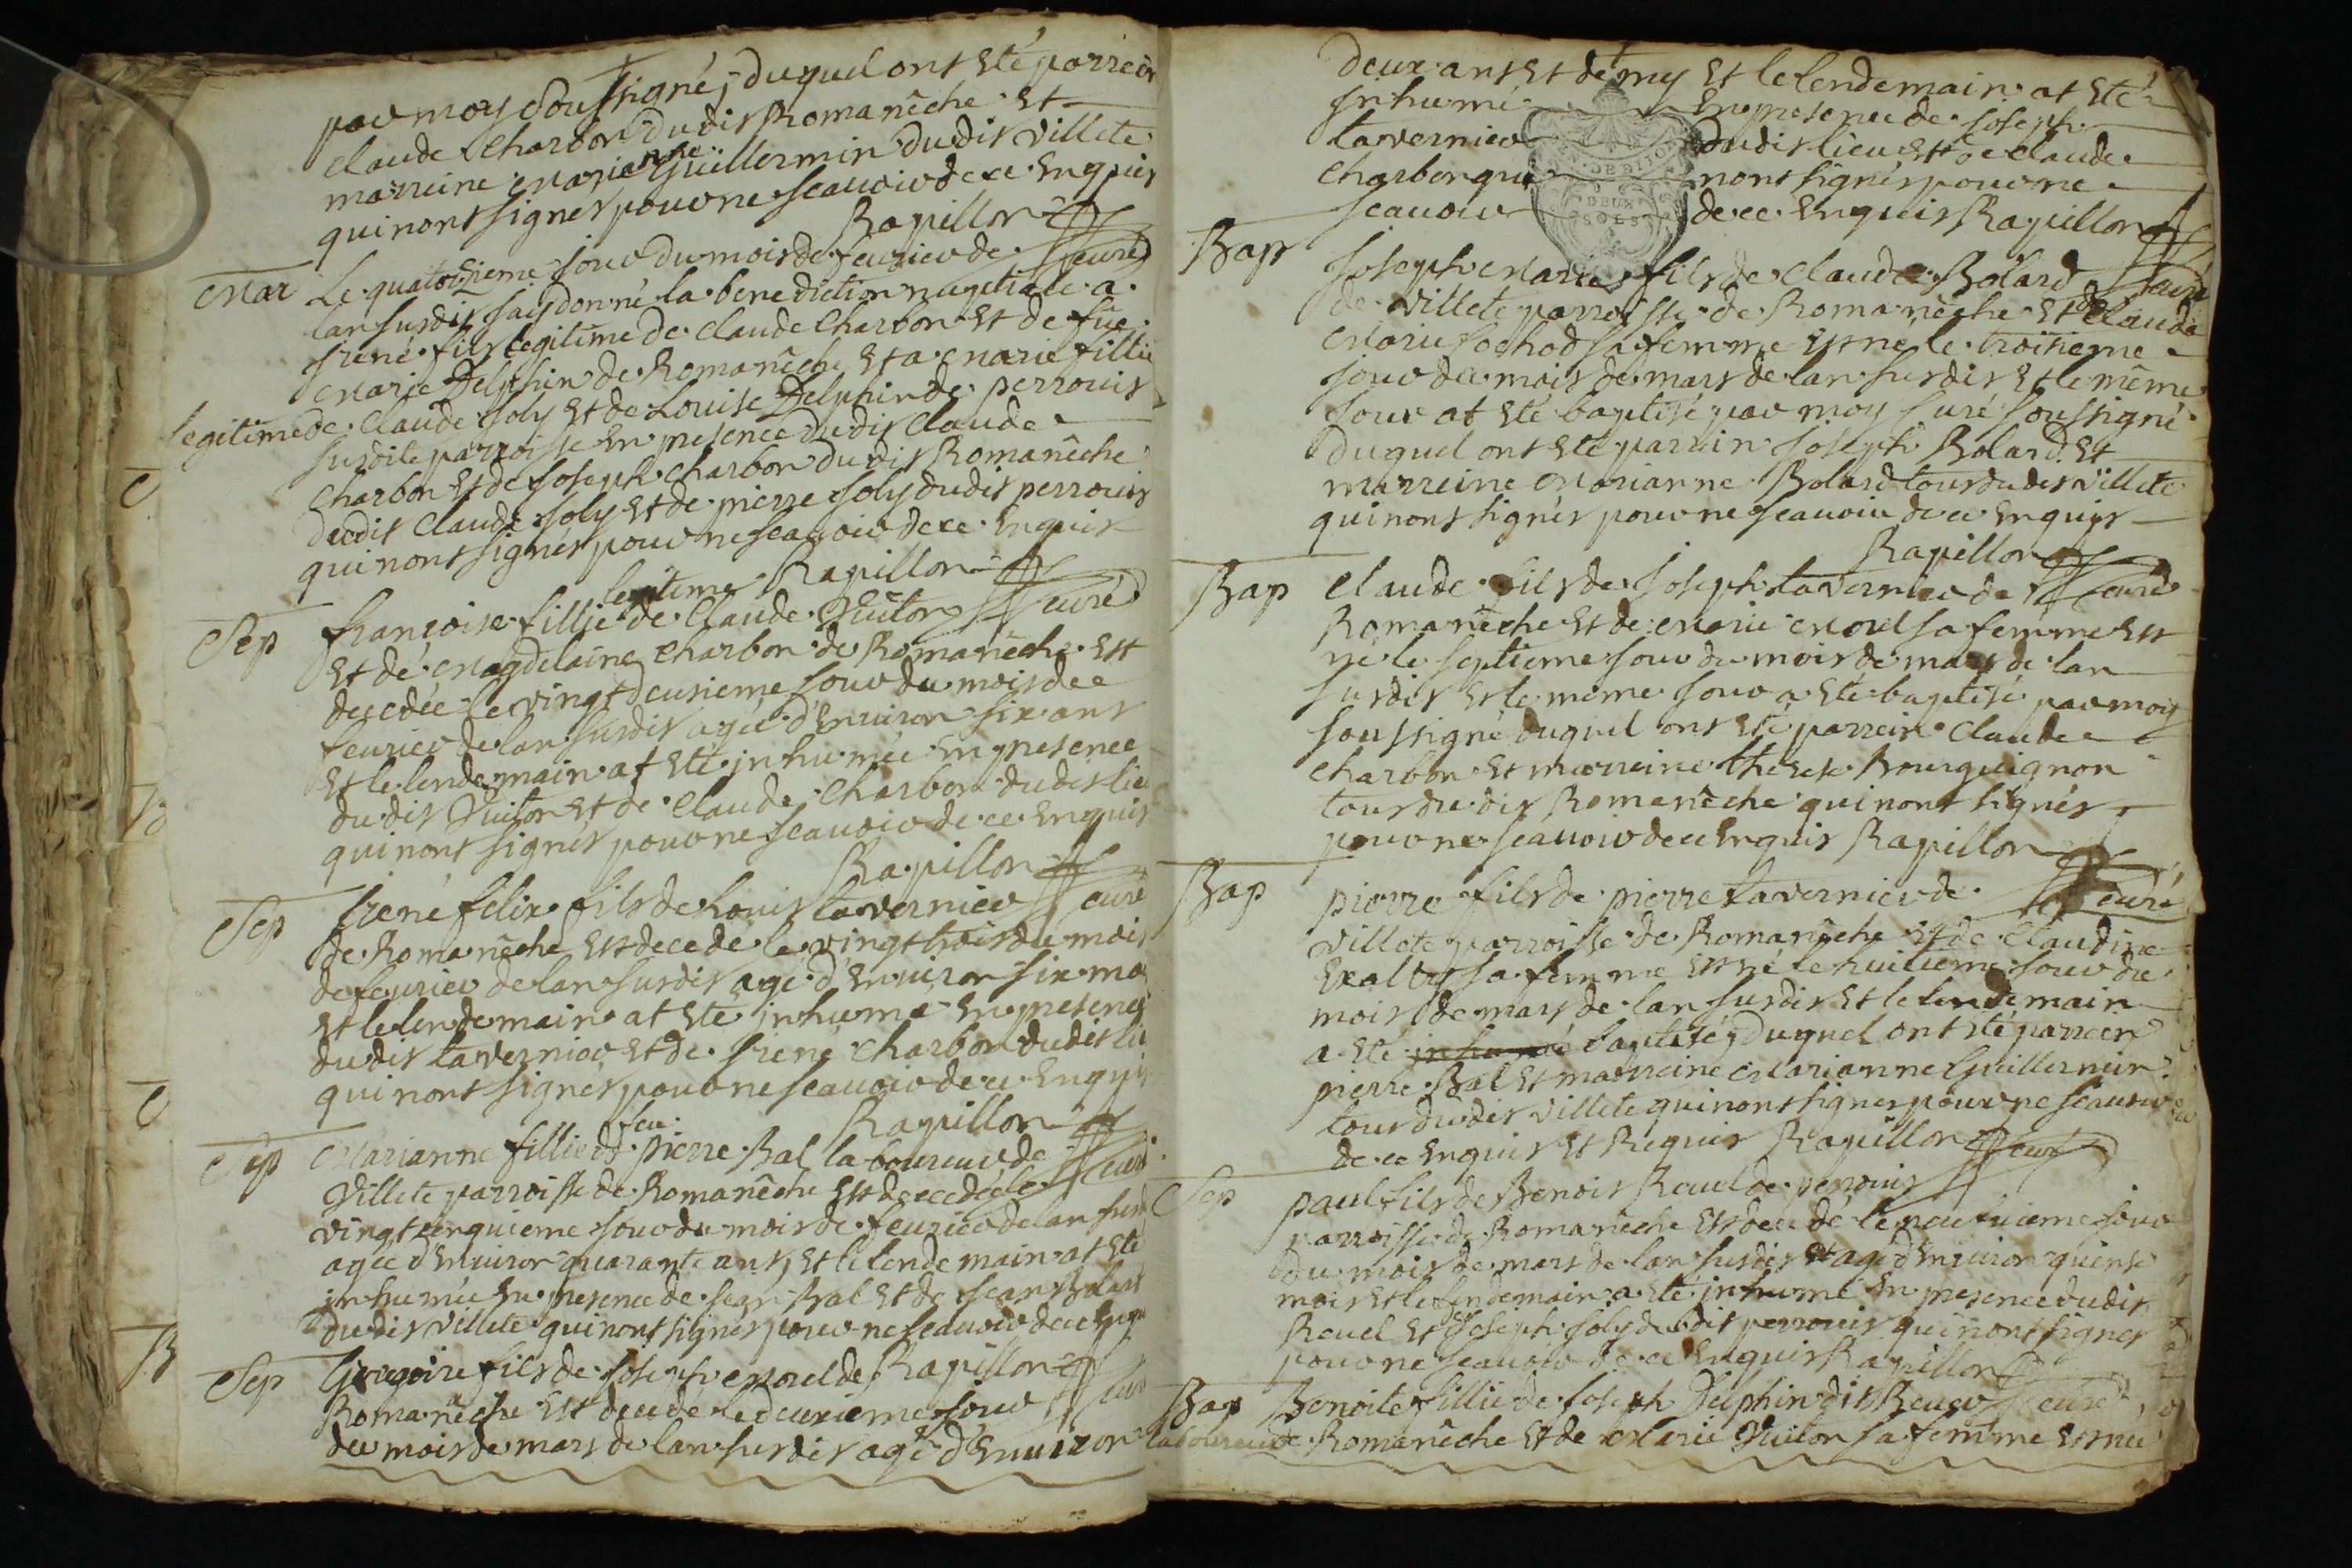 par moy soussigné; duquel ont esté parrein
claude charbon dudit Romanêche et
marreine marianne Guillermin dudit villete
qui nont signés pour ne scauoir de ce enquis
Rapillon curé
Mar Le quatorzieme jour du mois de feurier de
lan susdit jay donné la benediction nuptiale a
jrené fils legitime de claude charbon et de füe
marie Delphin de Romanêche et a marie fillie
legitime de claude joly et de Louise Delphin de perrouis
susdite parroisse en presence dudit claude
charbon et de joseph charbon dudit Romanêche
dudit claude joly et de pierre joly dudit perrouis
qui nont signés pour ne scauoir de ce enquis
Rapillon curé
Sep françoise fillie legitime de claude Vuiton
et de magdelaine charbon de Romanêche est
decedée le vingt deusieme jour du mois de
feurier de lan susdit agée d'enuiron six ans
et le lendemain at esté inhumée en presence
du dit Vuiton et de claude charbon dudit lieu
qui nont signés pour ne scauoir de ce enquis
Rapillon curé
Sep jrené felix fils de Louis tavernier
de Romanêche est decede le vingt trois du mois
de feurier de lan susdit agé d'enuiron six mo
et le lendemain at esté inhumé en presence
dudit tavernier et de jrené charbon dudit li
qui nont signés pour ne scauoir de ce enquis
Rapillon curé
Sep Marianne fillie de feu pierre Bal laboureur de
Villete parroisse de Romanêche est decedée le
vingt cinquieme jour du mois de feurier de lan susd
agée d'enuiron quarante ans, et le lendemain at esté
inhumée en presence de jean Bal et de jean Bolard
dudit villete qui nont signés pour ne scauoir de ce enqu
Rapillon cur
Sep Gregoire fils de joseph morel de
Romanêche est decedé le deuxieme jour
du mois de mars de lan susdit agé d'enuiron
deux ans et demy et le lendemain at esté
inhumé en presence de joseph
tavernier dudit lieu et de claude
charbon qui nont signés pour ne
scauoir de ce enquis Rapillon curé
DEUX
SOLS
Bap joseph marie fils de claude Bolard
de Villete parroisse de Romanêche et de claude
marie fochod sa femme est né le troisieme
jour du mois de mars de lan susdit et le même
jour at esté baptisé par moy curé soussigné
duquel ont esté parrain joseph Bolard et
marreine marianne Bolard tous dudit Villete
qui nont signés pour ne scauoir de ce enquis
Rapillon curé
Bap claude fils de joseph tavernier de
Romanêche et de marie morel sa femme est
né le septieme jour du mois de mars de lan
susdit et le même jour a esté baptisé par moy
soussigné duquel ont esté parrein claude
charbon et marreine therese Bourguignon
tous du dit Romanêche qui nont signés
pour ne scauoir de ce enquis Rapillon curé
Bap pierre fils de pierre tavernier de
Villete parroisse de Romanêche et de claudine
sa femme est né le huitieme jour du
mois de mars de lan susdit et le lendemain
a esté inhumé baptisé, duquel ont esté parrein
pierre Bal et marreine marianne Guillermin
tous dudit Villete qui nont signés pour ne scauoir
de ce enquis et Requis Rapillon curé
Sep paul fils de Benois Revel de perrouis
parroisse de Romanêche est decedé le neufuieme jour
du mois de mars de lan susdit et agé d'enuiron quinse
mois et le lendemain a esté inhumé en presence dudit
Revel et de joseph joly dudit perrouis qui nont signés
pour ne scauoir de ce enquis Rapillon curé
Bap Benoite fillie de joseph Delphin dit
laboureur de Romanêche et de marie Vuiton sa femme est née